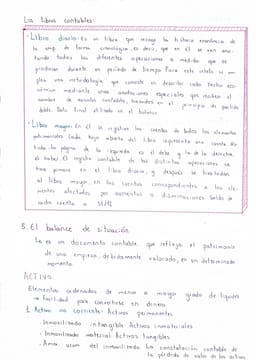 Los libros contables:
- Libro diario: es un libro que recoge la historia económica de
la emp. de forma cronológica, es decir, que en él se van ano-
tando todas las diferentes operaciones a medida que se
producen durante un periodo de tiempo. Para esto se em-
plea una metodología que consiste en describir cada hecho eco-
nómico mediante unas anotaciones especiales que reciben el
nombre de asientos contables, basados en el principio de partida
doble. Saldo final utilizado en el balance
- Libro mayor: En él se registran las cuentas de todos los elementos
patrimoniales (cada hoja abierta del libro representa una cuenta.
toda la página de la izquierda es el debe y la de la derecha,
el haber). El registro contable de las distintas operaciones se
hace primero en el libro diario, y después se trasladan
al libro mayor, en las cuentas correspondientes a los ele-
mentos afectados por aumentos o disminuciones. Saldo de
cada cuenta a 31/12
5. El balance de situación
Es un documento contable que refleja el patrimonio
de una empresa, debidamente valorado, en un determinado
momento.
ACTIVO
Elementos ordenados de menor a mayor grado de liquidez
→ facilidad para convertirse en dinero
1. Activo no corriente: Activos permanentes
- Inmovilizado intangible: Activos inmateriales
- Inmovilizado material: Activos tangibles
- Amo. acum. del inmovilizado: La constatación contable de
la pérdida de valor de los activos